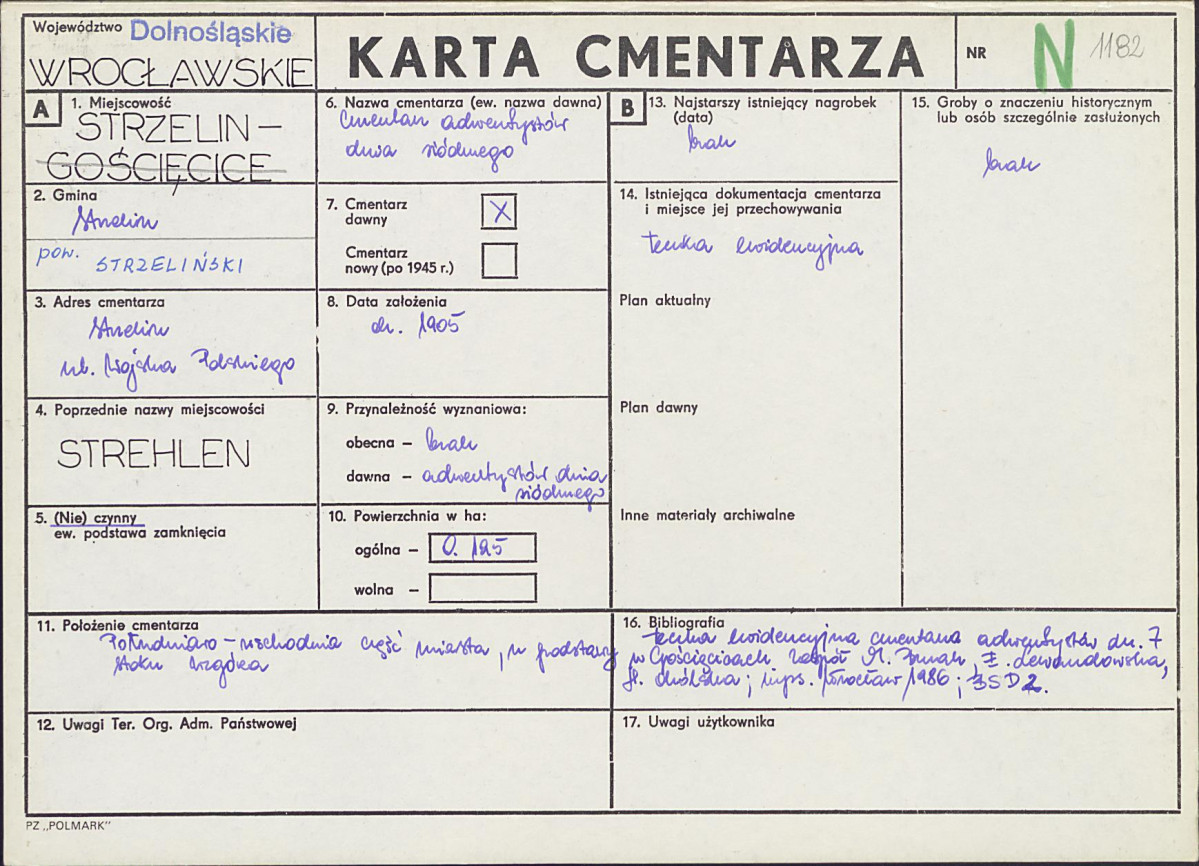 Województwo Dolnośląskie
WROCŁAWSKIE
KARTA CMENTARZA
NR N 1182
A
1. Miejscowość
STRZELIN –
GOŚCIĘCICE
2. Gmina
Strzelin
pow. STRZELIŃSKI
3. Adres cmentarza
Strzelin
ul. Wojska Polskiego
4. Poprzednie nazwy miejscowości
STREHLEN
5. (Nie) czynny
ew. podstawa zamknięcia
6. Nazwa cmentarza (ew. nazwa dawna)
Cmentarz adwentystów
dnia siódmego
7. Cmentarz
dawny X
Cmentarz
nowy (po 1945 r.)
8. Data założenia
ok. 1905
9. Przynależność wyznaniowa:
obecna – brak
dawna – adwentystów dnia
siódmego
10. Powierzchnia w ha:
ogólna – 0.125
wolna –
B
13. Najstarszy istniejący nagrobek
(data)
brak
14. Istniejąca dokumentacja cmentarza
i miejsce jej przechowywania
teczka ewidencyjna
Plan aktualny
Plan dawny
Inne materiały archiwalne
15. Groby o znaczeniu historycznym
lub osób szczególnie zasłużonych
brak
11. Położenie cmentarza
Południowo – wschodnia część miasta, u podstawy
stoku wzgórza
12. Uwagi Ter. Org. Adm. Państwowej
16. Bibliografia
teczka ewidencyjna cmentarza adwentystów dn. 7
w Gościęcicach zespół E. Lewandowska,
mps. Wrocław 1986;
17. Uwagi użytkownika
PZ „POLMARK"